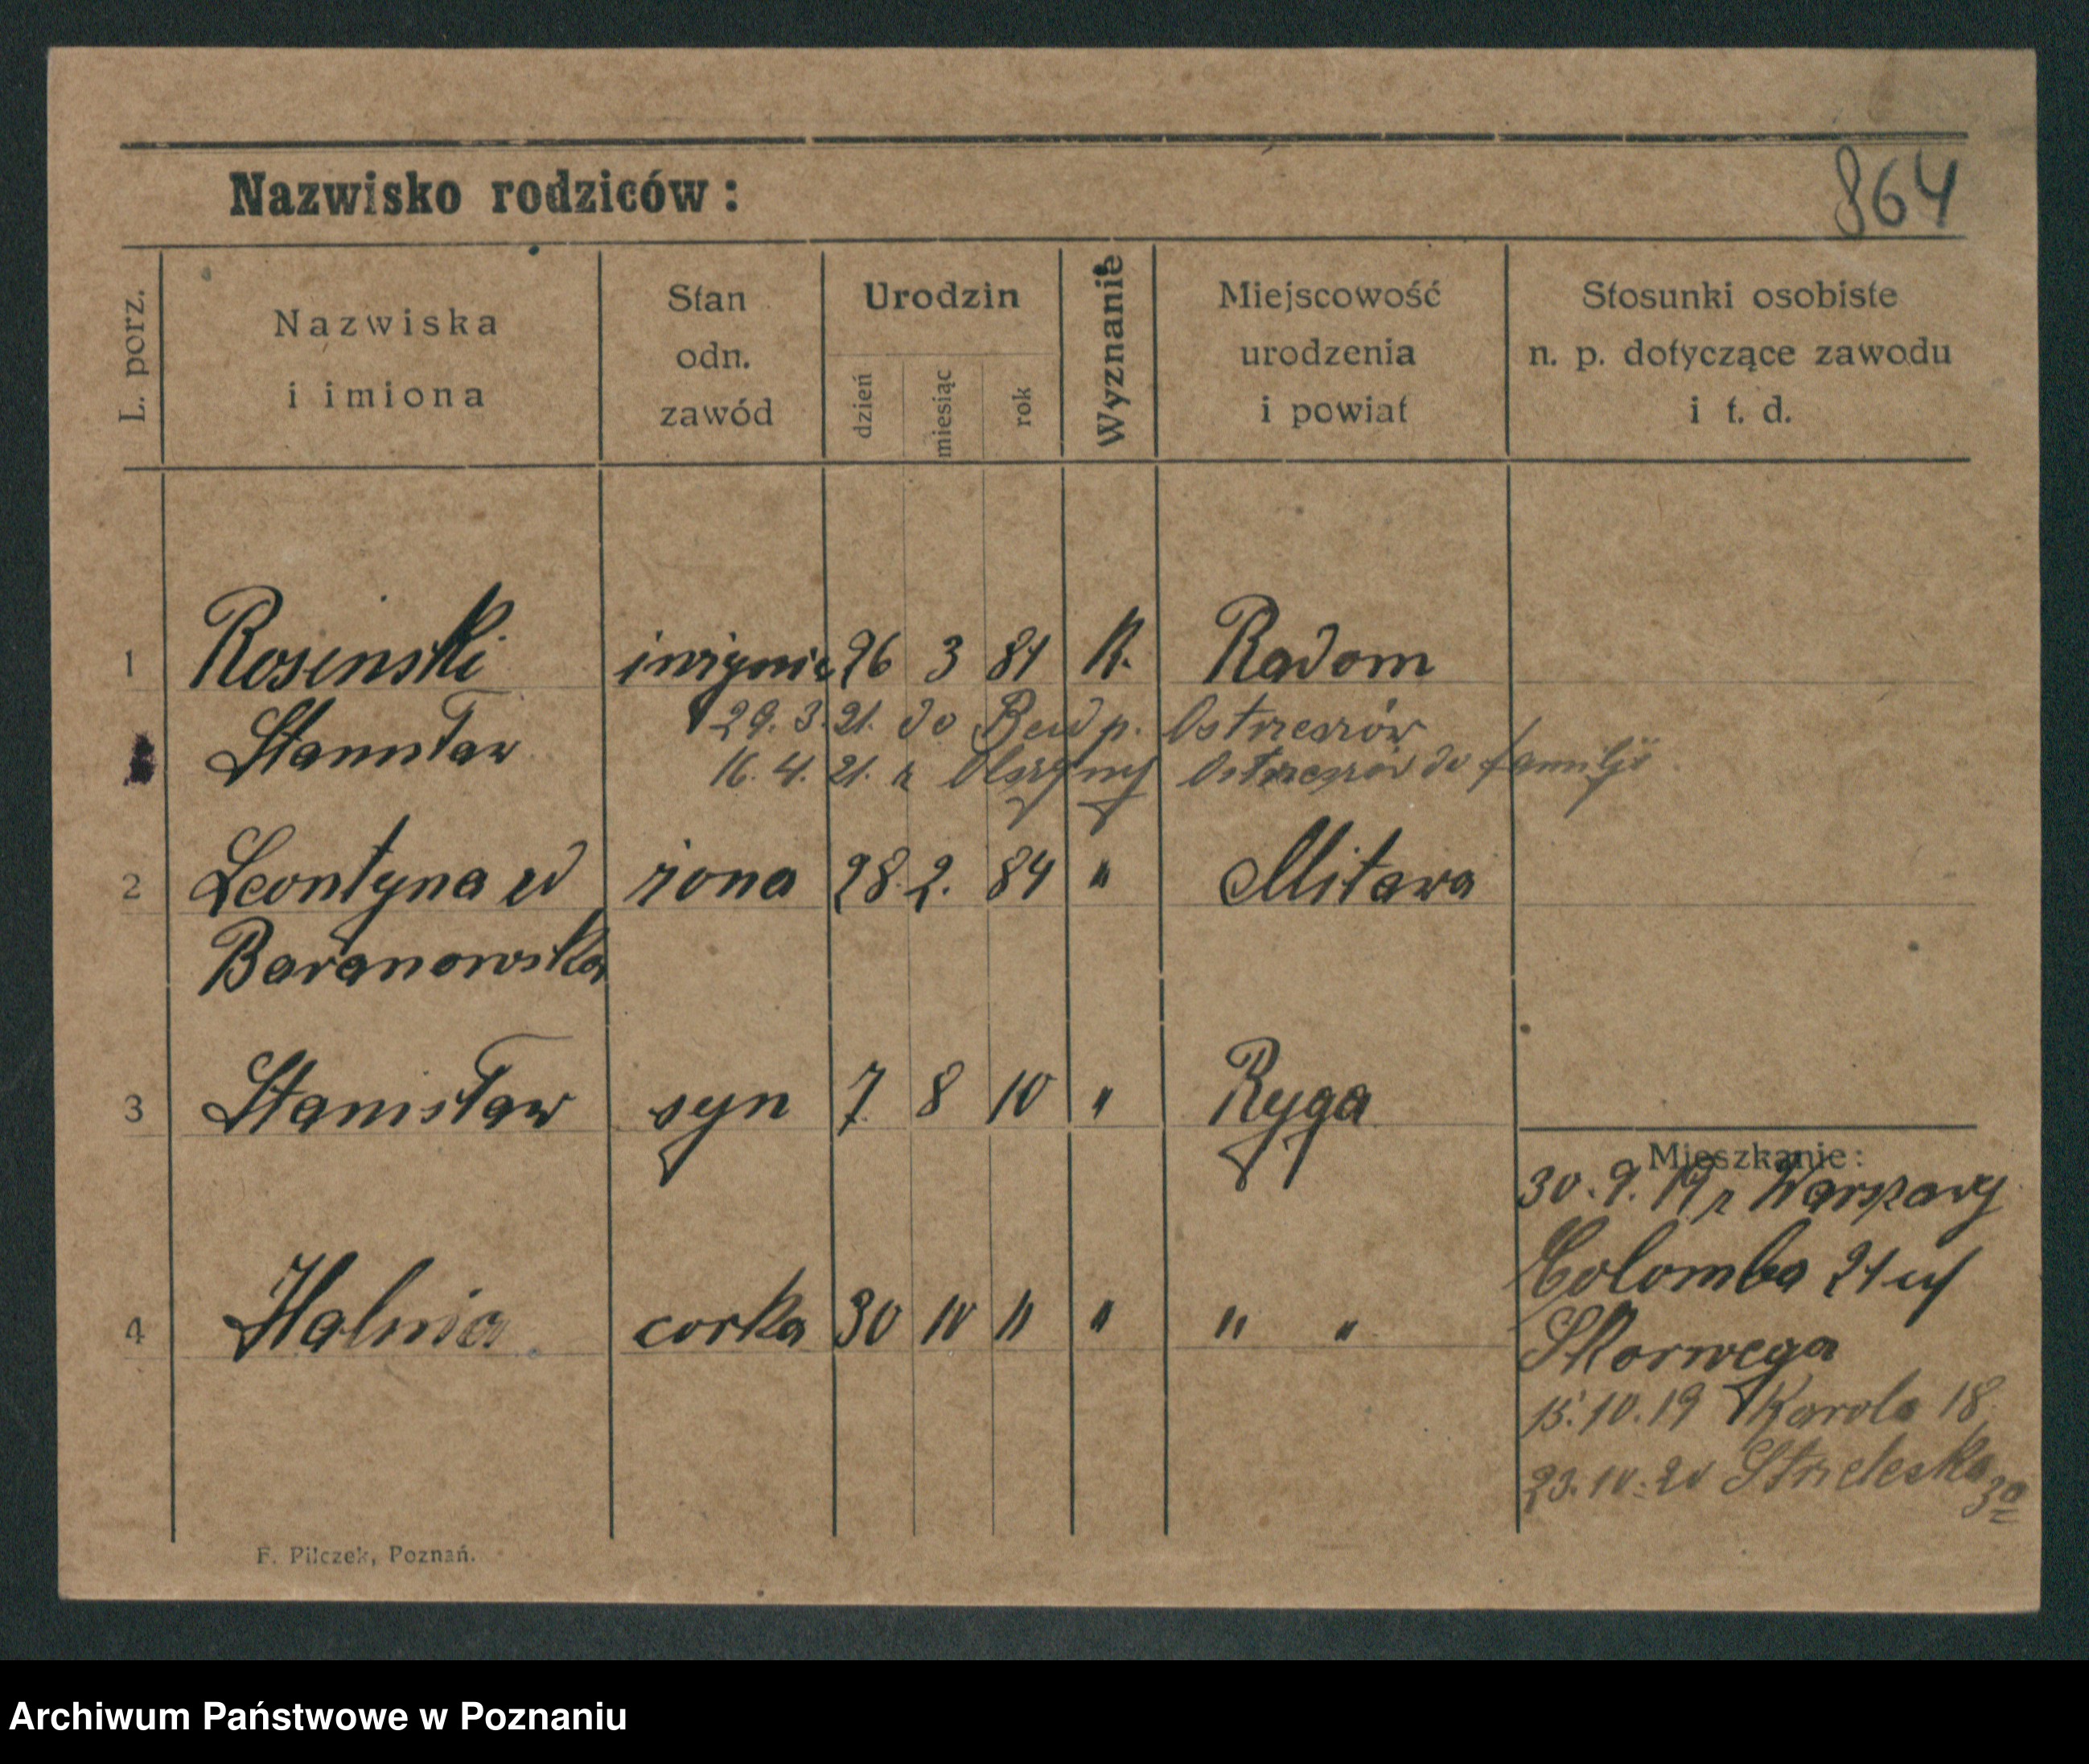 864
Nazwisko rodziców :
L. porz.
Nazwiska
i imiona
Stan
odn.
zawód
Urodzin
dzień
miesiąc
rok
Wyznanie
Miejscowość
urodzenia
i powiat
Stosunki osobiste
n. p. dotyczące zawodu
i t. d.
1 Rosinski inżynie 26 3 81 K. Radom
Stanisław 29. 3. 21. do p. Ostrzeszów
16. 4. 21. z Olszyny Ostrzeszów do familji
2 Leontyna u żona 28. 2. 84 " Mitawa
Baranowska
3 Stanisław syn 7 8 10 " Ryga
4 Halina corka 30 10 11 " " "
Mieszkanie:
30. 9. 19 z Warszawy
Colomba 21 u
Skorwega
15. 10. 19 Karola 18
23. 10. 20 Strzelecka 3a
F. Pilczek, Poznań.
Archiwum Państwowe w Poznaniu